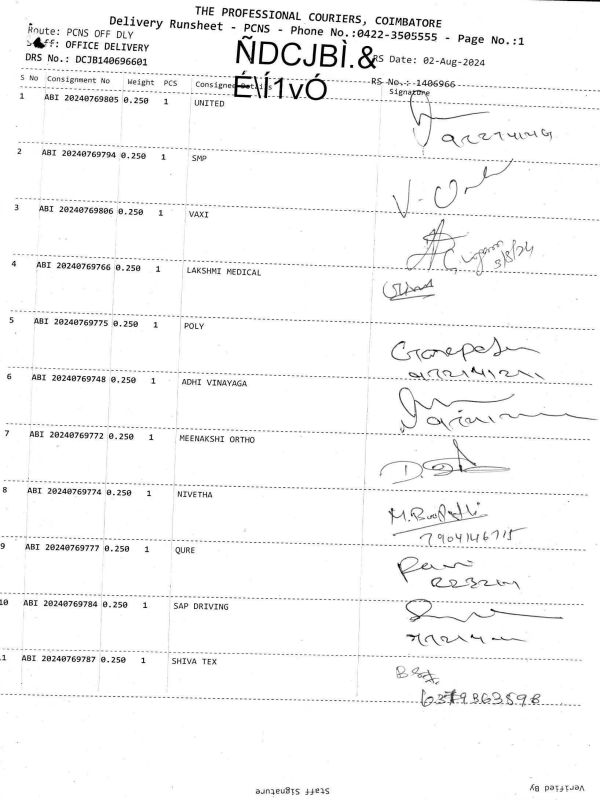 THE PROFESSIONAL COURIERS, COIMBATORE
Delivery Runsheet - PCNS - Phone No.:0422-3505555 - Page No.:1
Route: PCNS OFF DLY
Staff: OFFICE DELIVERY
DRS No.: DCJB140696601
ÑDCJBÌ.&
É\Í1vÓ
RS Date: 02-Aug-2024
RS No.: 1406966
S No Consignment No Weight PCS Consignee Details Signature
1 ABI 20240769805 0.250 1 UNITED
2 ABI 20240769794 0.250 1 SMP
3 ABI 20240769806 0.250 1 VAXI
3/8/24
4 ABI 20240769766 0.250 1 LAKSHMI MEDICAL
5 ABI 20240769775 0.250 1 POLY
6 ABI 20240769748 0.250 1 ADHI VINAYAGA
7 ABI 20240769772 0.250 1 MEENAKSHI ORTHO
8 ABI 20240769774 0.250 1 NIVETHA
7904146715
9 ABI 20240769777 0.250 1 QURE
10 ABI 20240769784 0.250 1 SAP DRIVING
11 ABI 20240769787 0.250 1 SHIVA TEX
6379863598
Staff Signature
Verified By